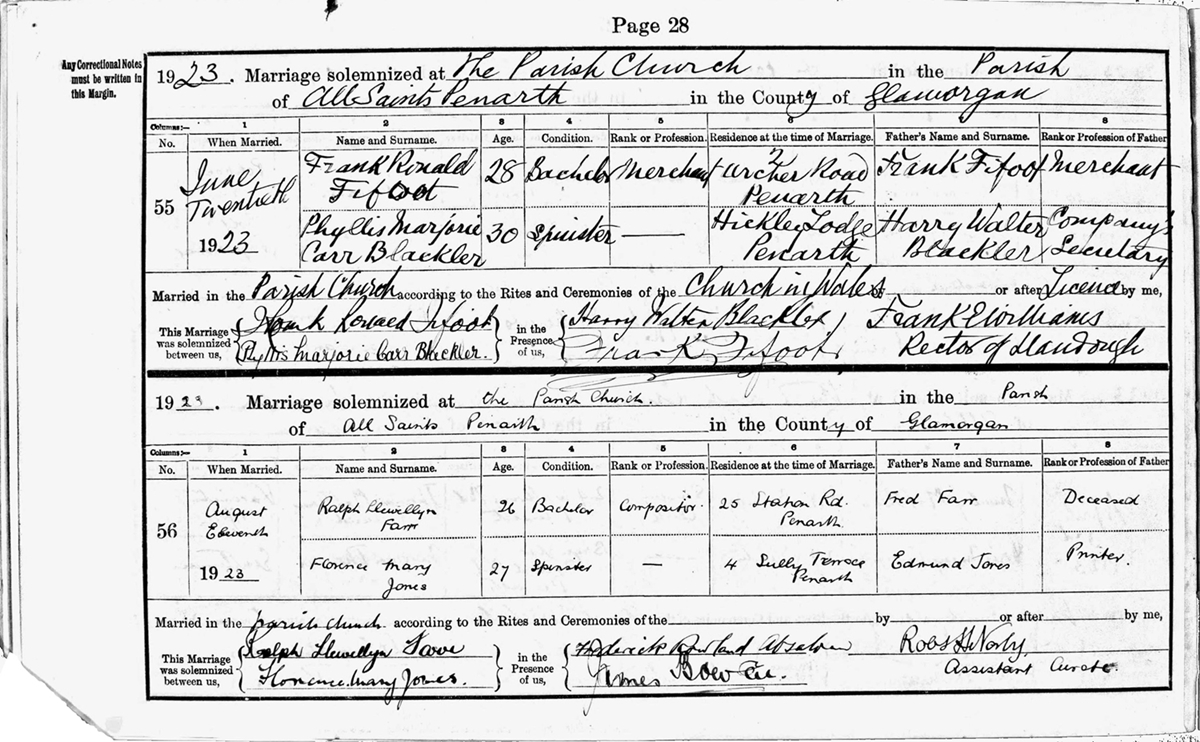 Page 28
Any Correctional Notes
must be written in
this Margin.
1923. Marriage solemnized at The Parish Church in the Parish
of All Saints Penarth in the County of Glamorgan
Columns:— 1 2 3 4 5 6 8
No. When Married. Name and Surname. Age. Condition. Rank or Profession. Residence at the time of Marriage. Father's Name and Surname. Rank or Profession of Father
55 June Twentieth 1923
Frank Ronald Fifoot 28 Bachelor Merchant 2 Archer Road Penarth Frank Fifoot Merchant
Phyllis Marjorie Carr Blackler 30 Spinster — Hickley Lodge Penarth Harry Walter Blackler Company's Secretary
Married in the Parish Church according to the Rites and Ceremonies of the Church in Wales or after Licence by me,
This Marriage was solemnized between us, Frank Ronald Fifoot in the Presence of us, Harry Walter Blackler Frank E Williams
Phyllis Marjorie Carr Blackler. Frank Fifoot Rector of Llandough
1923. Marriage solemnized at the Parish Church. in the Parish
of All Saints Penarth in the County of Glamorgan
Columns:— 1 2 3 4 5 6 7 8
No. When Married. Name and Surname. Age. Condition. Rank or Profession. Residence at the time of Marriage. Father's Name and Surname. Rank or Profession of Father
56 August Eleventh 1923
Ralph Llewellyn Farr 26 Bachelor Compositor. 25 Station Rd. Penarth Fred Farr Deceased
Florence Mary Jones 27 Spinster — 4 Sully Terrace Penarth Edmund Jones Printer.
Married in the parish church according to the Rites and Ceremonies of the by or after by me,
This Marriage was solemnized between us, Ralph Llewellyn in the Presence of us, Frederick Rowland
Florence Mary Jones. James Assistant Curate.